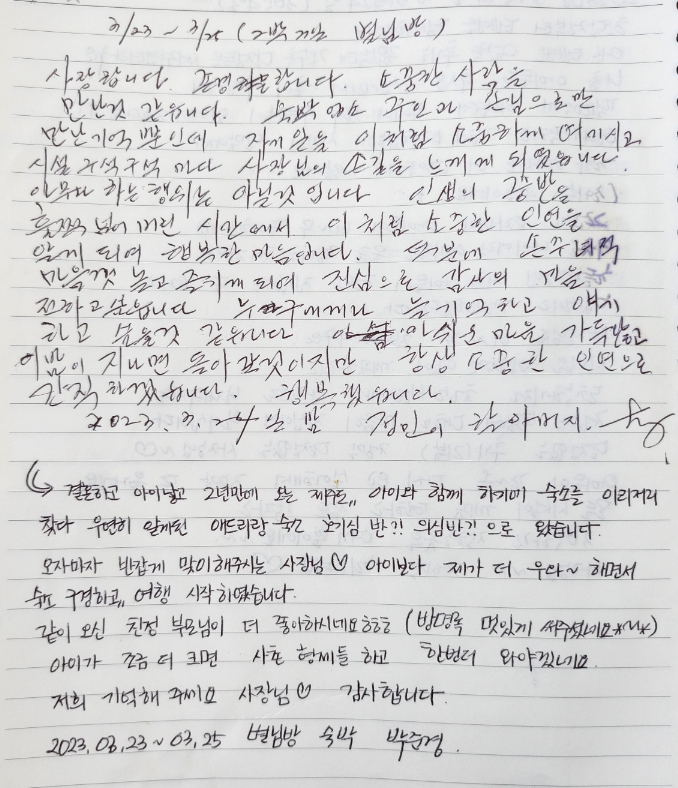 3/23 ~ 3/25 (2박 3일 별님방)
사랑합니다. 존경 합니다. 소중한 사람을
만난것 같읍니다. 숙박업소 주인과 손님으로만
만난 기억 뿐인데 이처럼 소중하게 여기시고
시설 구석구석 마다 사장님의 손길을 느끼게 되였읍니다.
아무나 하는 행위는 아닐것 입니다 인생의 중반을
훌쩍 넘어 버린 시간에서 이처럼 소중한 인연을
알게 되여 행복한 마음입니다. 덕분에 손주녀석
마음껏 놀고 즐기게 되여 진심으로 감사의 마음
전하고 싶읍니다 누구에게나 늘 기억하고 얘기
하고 싶을것 같읍니다 아쉬운 마음 가득담고
이밤이 지나면 돌아 갈것이지만 항상 소중한 인연으로
간직 하겠읍니다. 행복했읍니다.
2023. 3. 24일 밤 정민이 할아버지.
결혼하고 아이낳고 2년만에 오는 제주도,, 아이와 함께 하기에 숙소를 이리저리
찾다 우연히 알게된 애드리랑 숙소 호기심 반?! 의심반?!으로 왔습니다.
오자마자 반갑게 맞이해주시는 사장님♡ 아이보다 제가 더 우와~ 하면서
숙소 구경하고,, 여행 시작하였습니다.
같이 오신 친정 부모님이 더 좋아하시네요ㅎㅎㅎ (방명록 멋있게 써주셨네요*^^*)
아이가 조금 더 크면 사촌 형제들 하고 한번더 와야겠네요.
저희 기억해 주세요 사장님♡ 감사합니다.
2023.03.23 ~ 03.25 별님방 숙박 박준경.